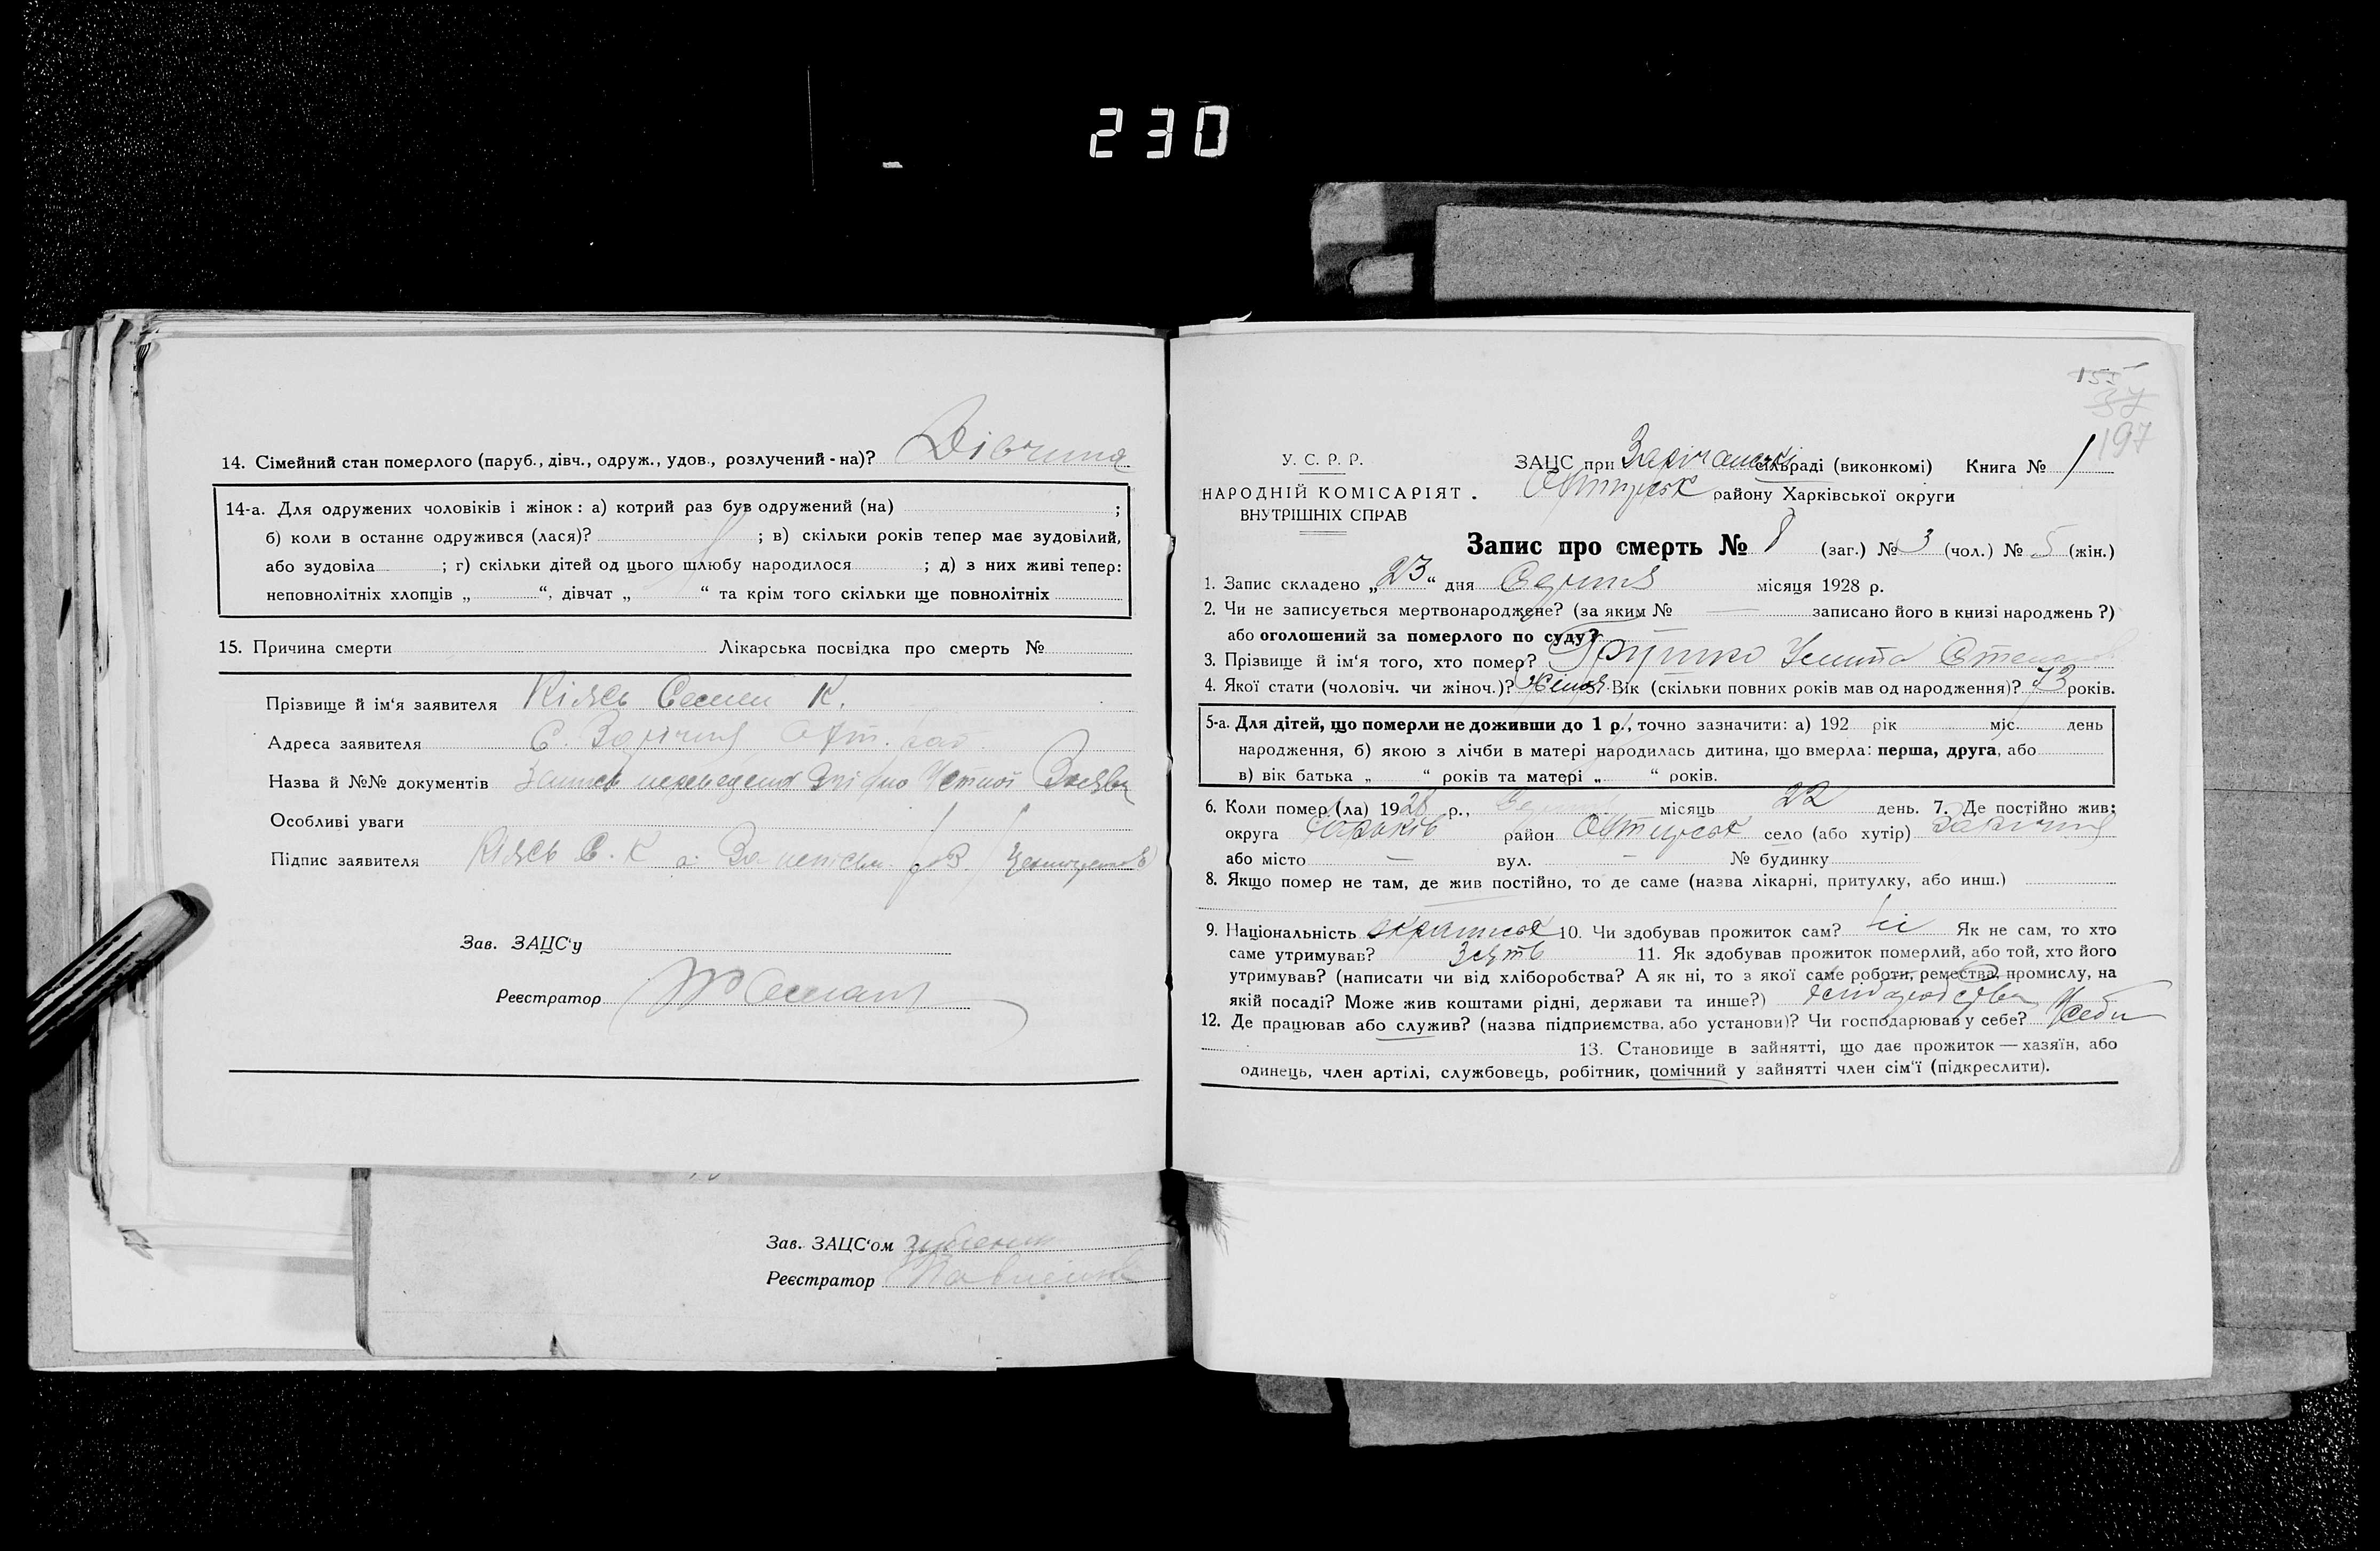 230
14. Сімейний стан померлого (паруб., дівч., одруж., удов., розлучений - на)? Дівчина
14-а. Для одружених чоловіків і жінок: а) котрий раз був одружений (на) ;
б) коли в останнє одружився (лася)? ; в) скільки років тепер має зудовілий,
або зудовіла ; г) скільки дітей од цього шлюбу народилося ; д) з них живі тепер:
неповнолітніх хлопців „ “, дівчат „ “ та крім того скільки ще повнолітніх
15. Причина смерти Лікарська посвідка про смерть №
Прізвище й ім'я заявителя Кіясь Семен К.
Адреса заявителя С. Зарічня Охт. рай.
Назва й №№ документів Запись переведена Згідно Устної Заяви
Особливі уваги
Підпис заявителя Кіясь С. К а
Зав. ЗАЦС'у
Реєстратор
Зав. ЗАЦС'ом
Реєстратор
155
37
197
У. С. Р. Р.
НАРОДНІЙ КОМІСАРІЯТ.
ВНУТРІШНІХ СПРАВ
ЗАЦС при сільраді (виконкомі) Книга № 1
району Харківської округи
Запис про смерть № 8 (заг.) № 3 (чол.) № 5 (жін.)
1. Запис складено „23“ дня місяця 1928 р.
2. Чи не записується мертвонароджене? (за яким № — записано його в книзі народжень?)
або оголошений за померлого по суду?
3. Прізвище й ім'я того, хто помер?
4. Якої стати (чоловіч. чи жіноч.)? Жіноч. Вік (скільки повних років мав од народження)? 73 років.
5-а. Для дітей, що померли не доживши до 1 р., точно зазначити: а) 192 рік міс. день
народження, б) якою з лічби в матері народилась дитина, що вмерла: перша, друга, або
в) вік батька „ “ років та матері „ “ років.
6. Коли помер (ла) 1928 р., місяць 22 день. 7. Де постійно жив:
округа Харьків район село (або хутір) Зарічня
або місто — вул. — № будинку
8. Якщо помер не там, де жив постійно, то де саме (назва лікарні, притулку, або инш.)
9. Національність 10. Чи здобував прожиток сам? ні Як не сам, то хто
саме утримував? Зять 11. Як здобував прожиток померлий, або той, хто його
утримував? (написати чи від хліборобства? А як ні, то з якої саме роботи, ремества, промислу, на
якій посаді? Може жив коштами рідні, держави та инше?)
12. Де працював або служив? (назва підприємства, або установи)? Чи господарював у себе? Усеби
13. Становище в зайнятті, що дає прожиток — хазяїн, або
одинець, член артілі, службовець, робітник, помічний у зайнятті член сім'ї (підкреслити).